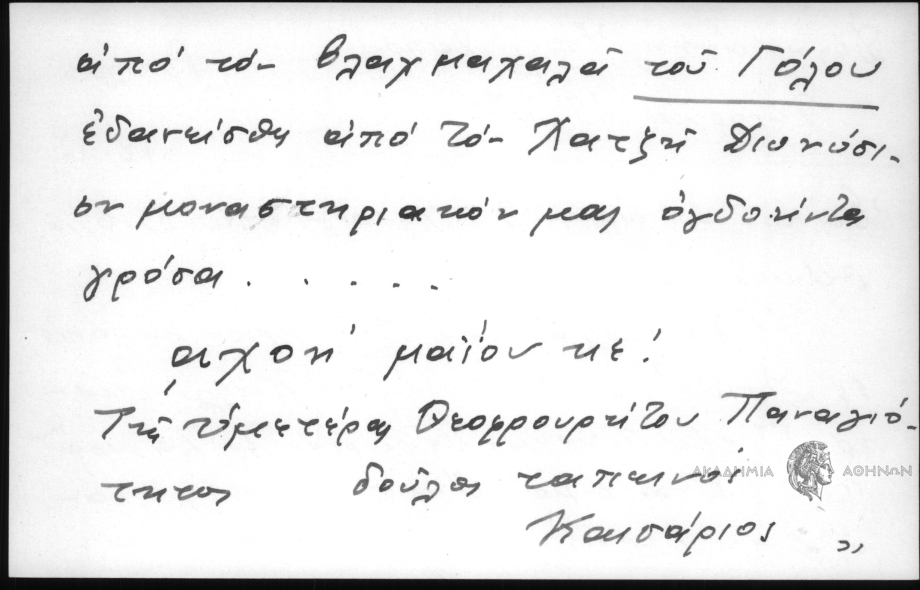 ἀπό τόν βλαχμαχαλᾶ τοῦ Γόλου
ἐδανείσθη ἀπό τόν Χατζῆ Διονύσι-
ον μοναστηριακόν μας ὀγδοήντα
γρόσα . . . . .
͵αχοή μαΐου κε!
Τῆς ὑμετέρας Θεοφρουρήτου Παναγιό-
τητος δοῦλος ταπεινός
Καισάριος "
ΑΚΑΔΗΜΙΑ ΑΘΗΝΩΝ